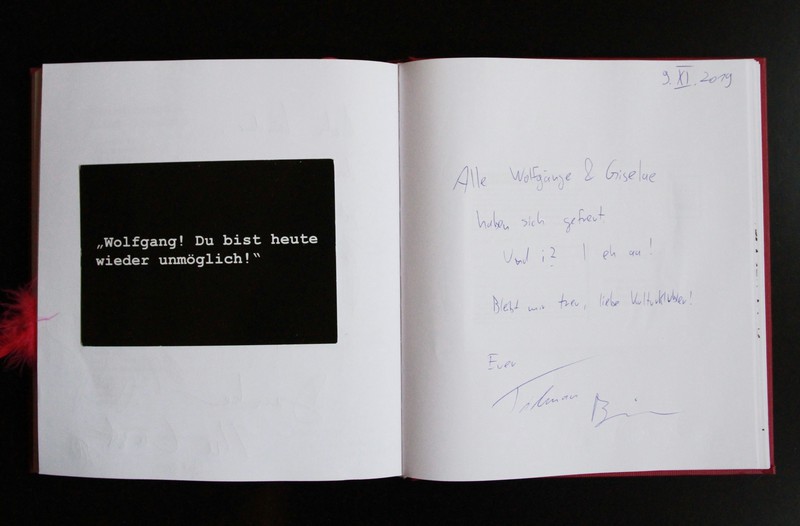 „Wolfgang! Du bist heute
wieder unmöglich!“
9. XI. 2019
Alle Wolfgänge & Giselae
haben sich gefreut.
Und i? I eh au!
Bleibt mir treu, liebe Kulturklubler!
Euer